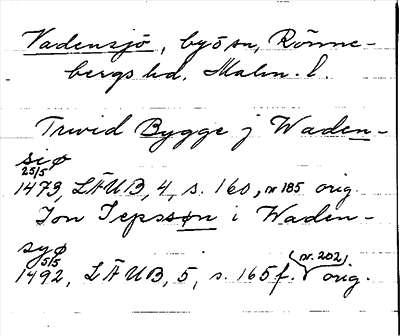 Vadensjö, by ö sn, Rönne-
bergs hd. Malm. l.
Truid Bygge j Waden-
siø
25/5
1473, LÄUB, 4, s. 160, nr 185 orig.
Jon Jepssøn i Waden-
syø
5/5 (nr. 202)
1492, LÄUB, 5, s. 165 f. orig.